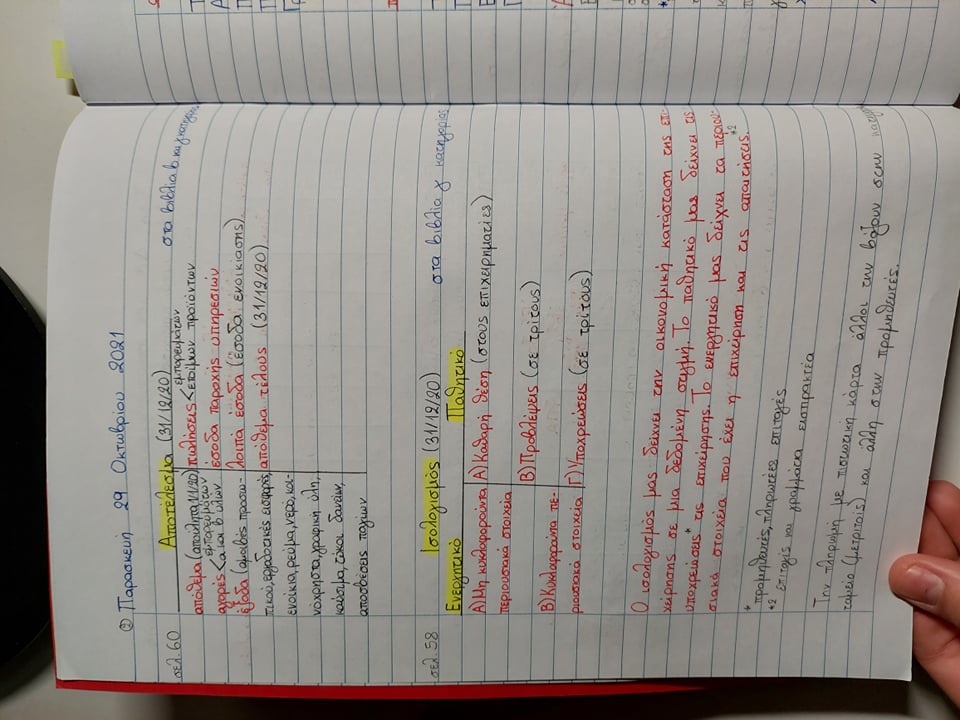 ② Παρασκευή 29 Οκτωβρίου 2021
σελ.60 Αποτέλεσμα (31/12/20) στα βιβλία β και γ κατηγορίας
απόθεμα (απούλητα 1/1/20)
αγορές < εμπορευμάτων
α και β υλών
έξοδα (αμοιβές προσω-
πικού, εργοδοτικές εισφορές,
ενοίκια, ρεύμα, νερό, κοι-
νόχρηστα, γραφική ύλη,
καύσιμα, τόκοι δανείων,
αποσβέσεις παγίων
πωλήσεις < εμπορευμάτων
ετοίμων προϊόντων
έσοδα παροχής υπηρεσιών
λοιπά έσοδα (έσοδα ενοικίασης)
απόθεμα τέλους (31/12/20)
σελ.58 Ισολογισμός (31/12/20) στα βιβλία γ κατηγορίας
Ενεργητικό Παθητικό
Α) Μη κυκλοφορούντα
περιουσιακά στοιχεία
Β) Κυκλοφορούντα πε-
ριουσιακά στοιχεία
Α) Καθαρή θέση (στους επιχειρηματίες)
Β) Προβλέψεις (σε τρίτους)
Γ) Υποχρεώσεις (σε τρίτους)
Ο ισολογισμός μας δείχνει την οικονομική κατάσταση της επι-
χείρησης σε μια δεδομένη στιγμή. Το παθητικό μας δείχνει τις
υποχρεώσεις* της επιχείρησης. Το ενεργητικό μας δείχνει τα περιου-
σιακά στοιχεία που έχει η επιχείρηση και τις απαιτήσεις.*2
* προμηθευτές, πληρωτέες επιταγές
*2 επιταγές και γραμμάτια εισπρακτέα
Την πληρωμή με πιστωτική κάρτα άλλοι την βάζουν στην
ταμείο (μετρητοίς) και άλλη στην προμηθευτές.